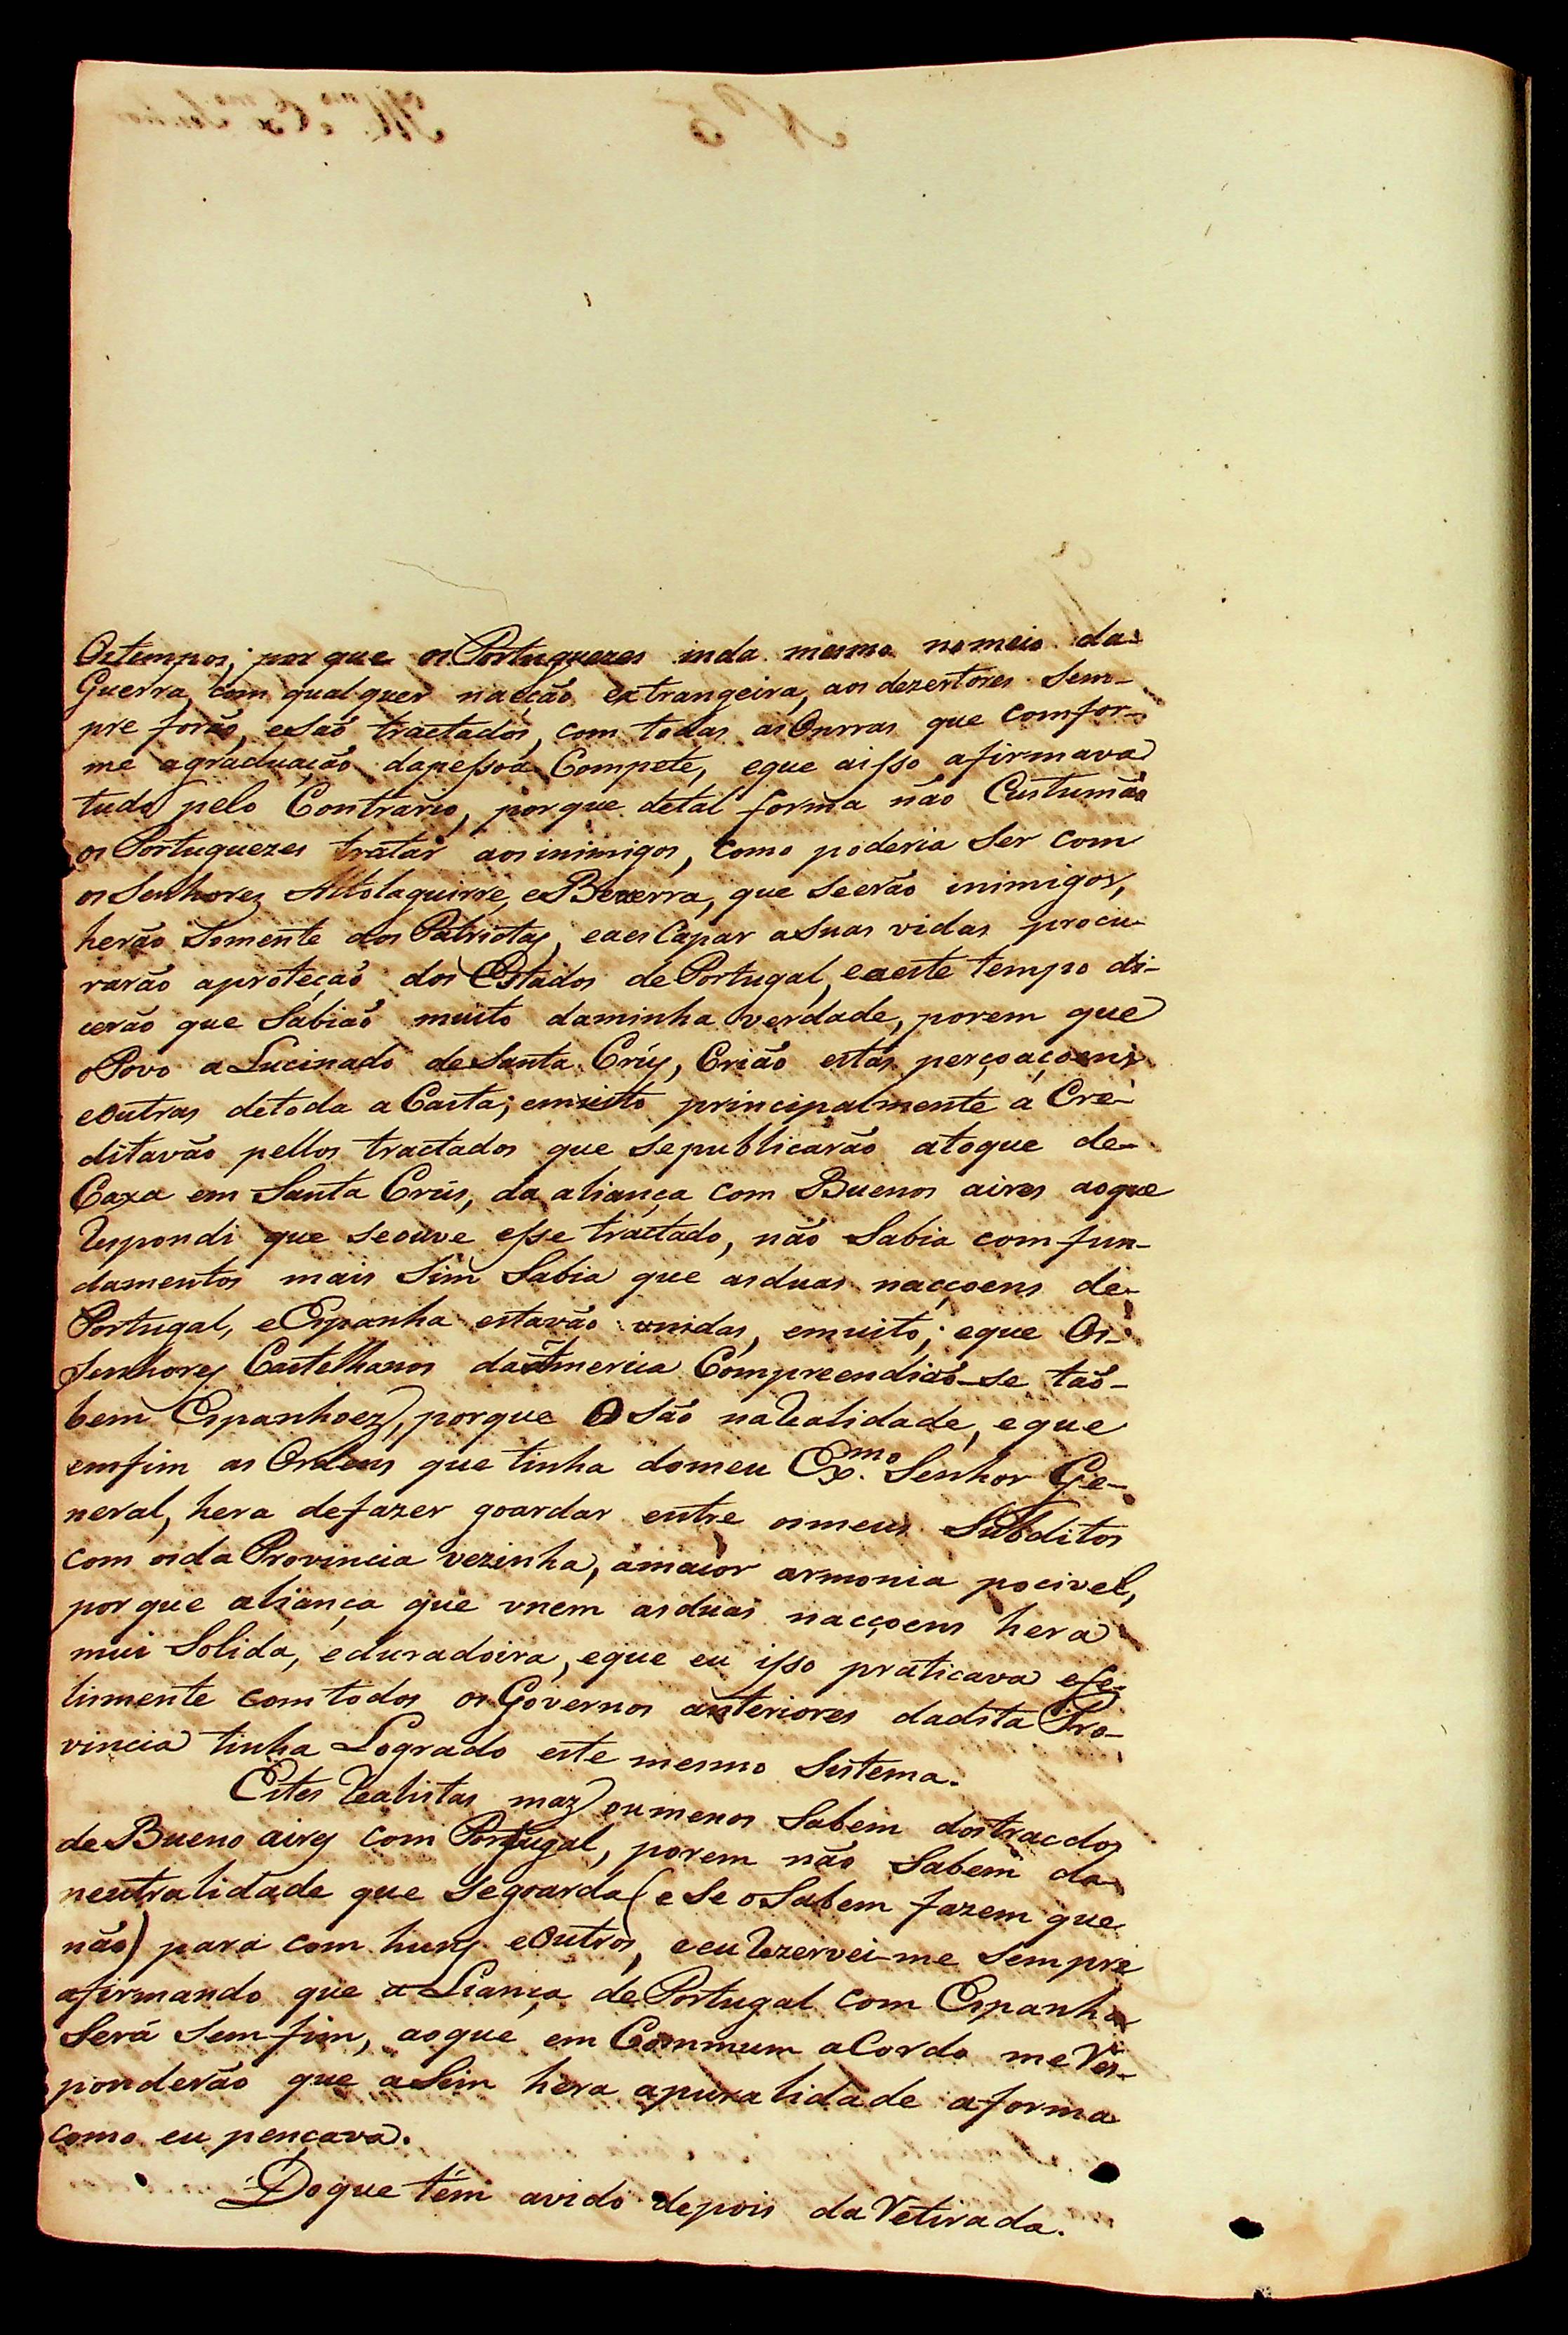 Ostempos; por que os Portuguezes inda mesmo nomeio da
Guerra com qualquer nacção extrangeira, aos dezertores sem-
pre forão, esão tractados, com todas as Onrras que comfor-
me agraduação dapessoa Compete, eque aisso afirmava
tudo pelo Contrario, porque detal forma não Custumão
os Portuguezes tratar aos inimigos, como poderia ser com
os Senhorez Altolaguirre, e Bezerra, que seerão inimigos,
herão somente dos Patriotas, eaes Capar asuas vidas procu-
rarão aproteção dos Estados de Portugal, eaeste tempo di-
cerão que Sabião muito daminha verdade, porem que
oPovo a Lucinado deSanta Crúz, Crião estas perçoaçoens
eoutras detoda a Casta; emuito principalmente a Cre-
ditavão pellos tractados que sepublicarão atoque de
Caxa em Santa Crús, da aliança com Buenos aires aoque
Respondi que seouve esse tractado, não Sabia com fun-
damentos mais Sim Sabia que asduas nacçoens de
Portugal, eEspanha estavão unidas, emuito; eque Os
Senhores Castelhanos daAmerica Compreendião-se tão-
bem Espanhoez, porque Os são naRealidade, eque
emfim as Ordens que tinha domeu Ex.mo Senhor Ge-
neral, hera defazer goardar entre osmeus Subditos
com osda Provincia vezinha, amaior armonia pocivel,
por que aliança que vnem asduas nacçoens hera
mui Solida, eduradoira, eque eu isso praticava efe-
lismente comtodos osGovernos anteriores dadita Pro-
vincia tinha Logrado este mesmo Sistema.
Estes Realistas maz oumenos Sabem dostracdos
deBueno aires com Portugal, porem não Sabem da
neutralidade que segoarda (e Se oSabem fazem que
não) para com huns eOutros, eeuRezervei-me sempre
afirmando que aLiança dePortugal com Espanha
Será sem fim, aoque em Commum aCordo meRes-
ponderão que aSim hera apuralidade aforma
como eu pençava.
Doque têm avido depois daRetirada.